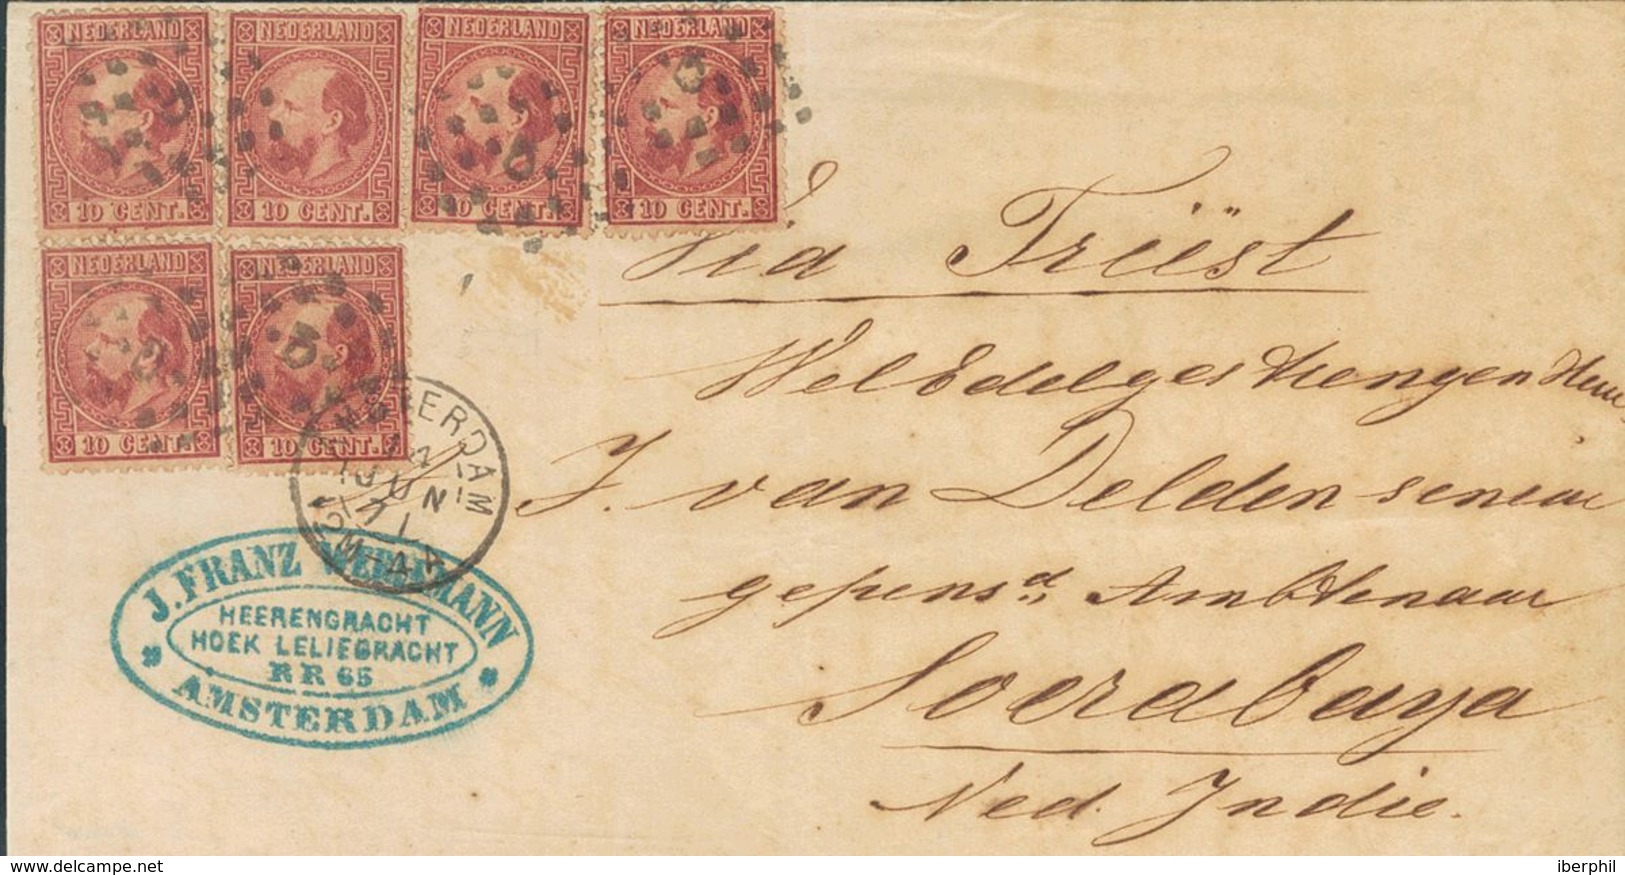 NEDERLAND NEDERLAND NEDERLAND NEDERLAND
10 CENT. 10 CENT. 10 CENT. 10 CENT.
NEDERLAND NEDERLAND
10 CENT. 10 CENT.
3
Via Triëst
WelEdelgestrengen Heer
J. van Delden senior
gepensd. Ambtenaar
Soerabaya
Ned. Indie.
AMSTERDAM
JUN
71
J. FRANZ
HEERENGRACHT
HOEK LELIEGRACHT
RR 65
AMSTERDAM
www.delcampe.net
iberphil